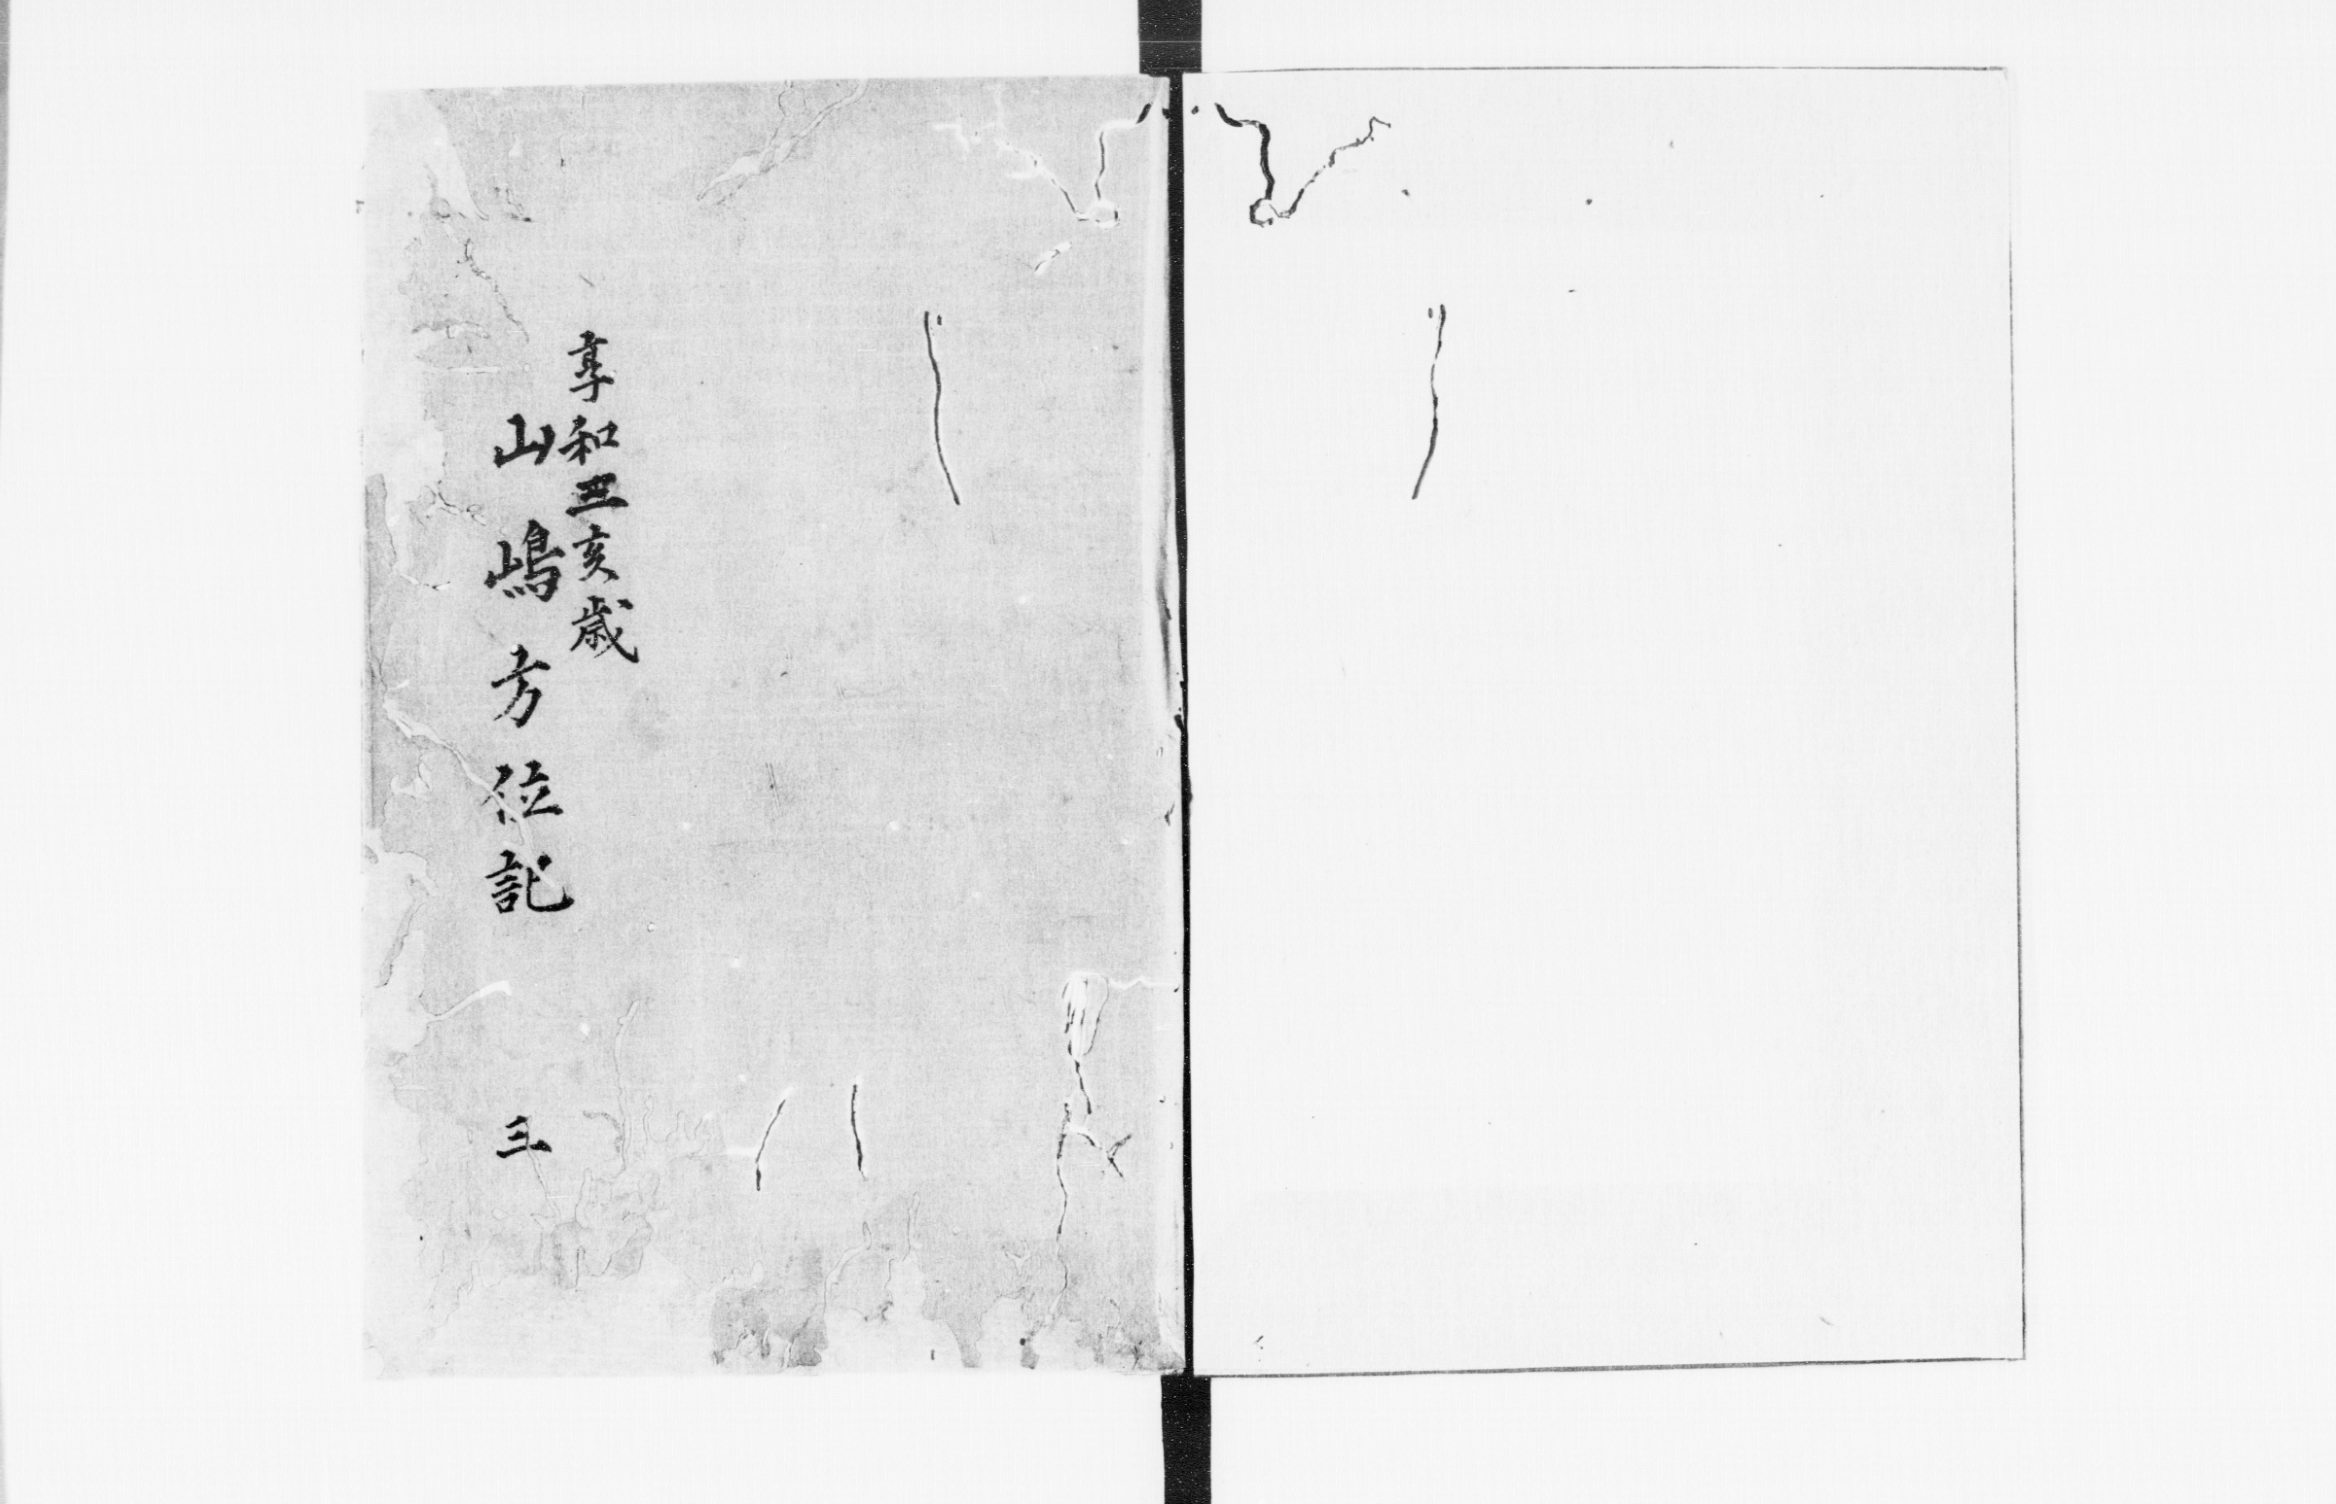 享和三亥歳
山嶋方位記
三